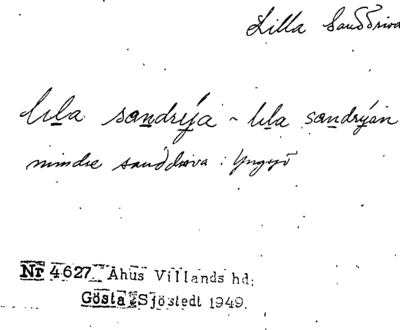 Lilla Sanddriva
lɩla sandrýa ~ lɩla sandrýan
mindre sanddriva i Yngsjö
Nr 4627 Åhus Villands hd.
Gösta Sjöstedt 1949.